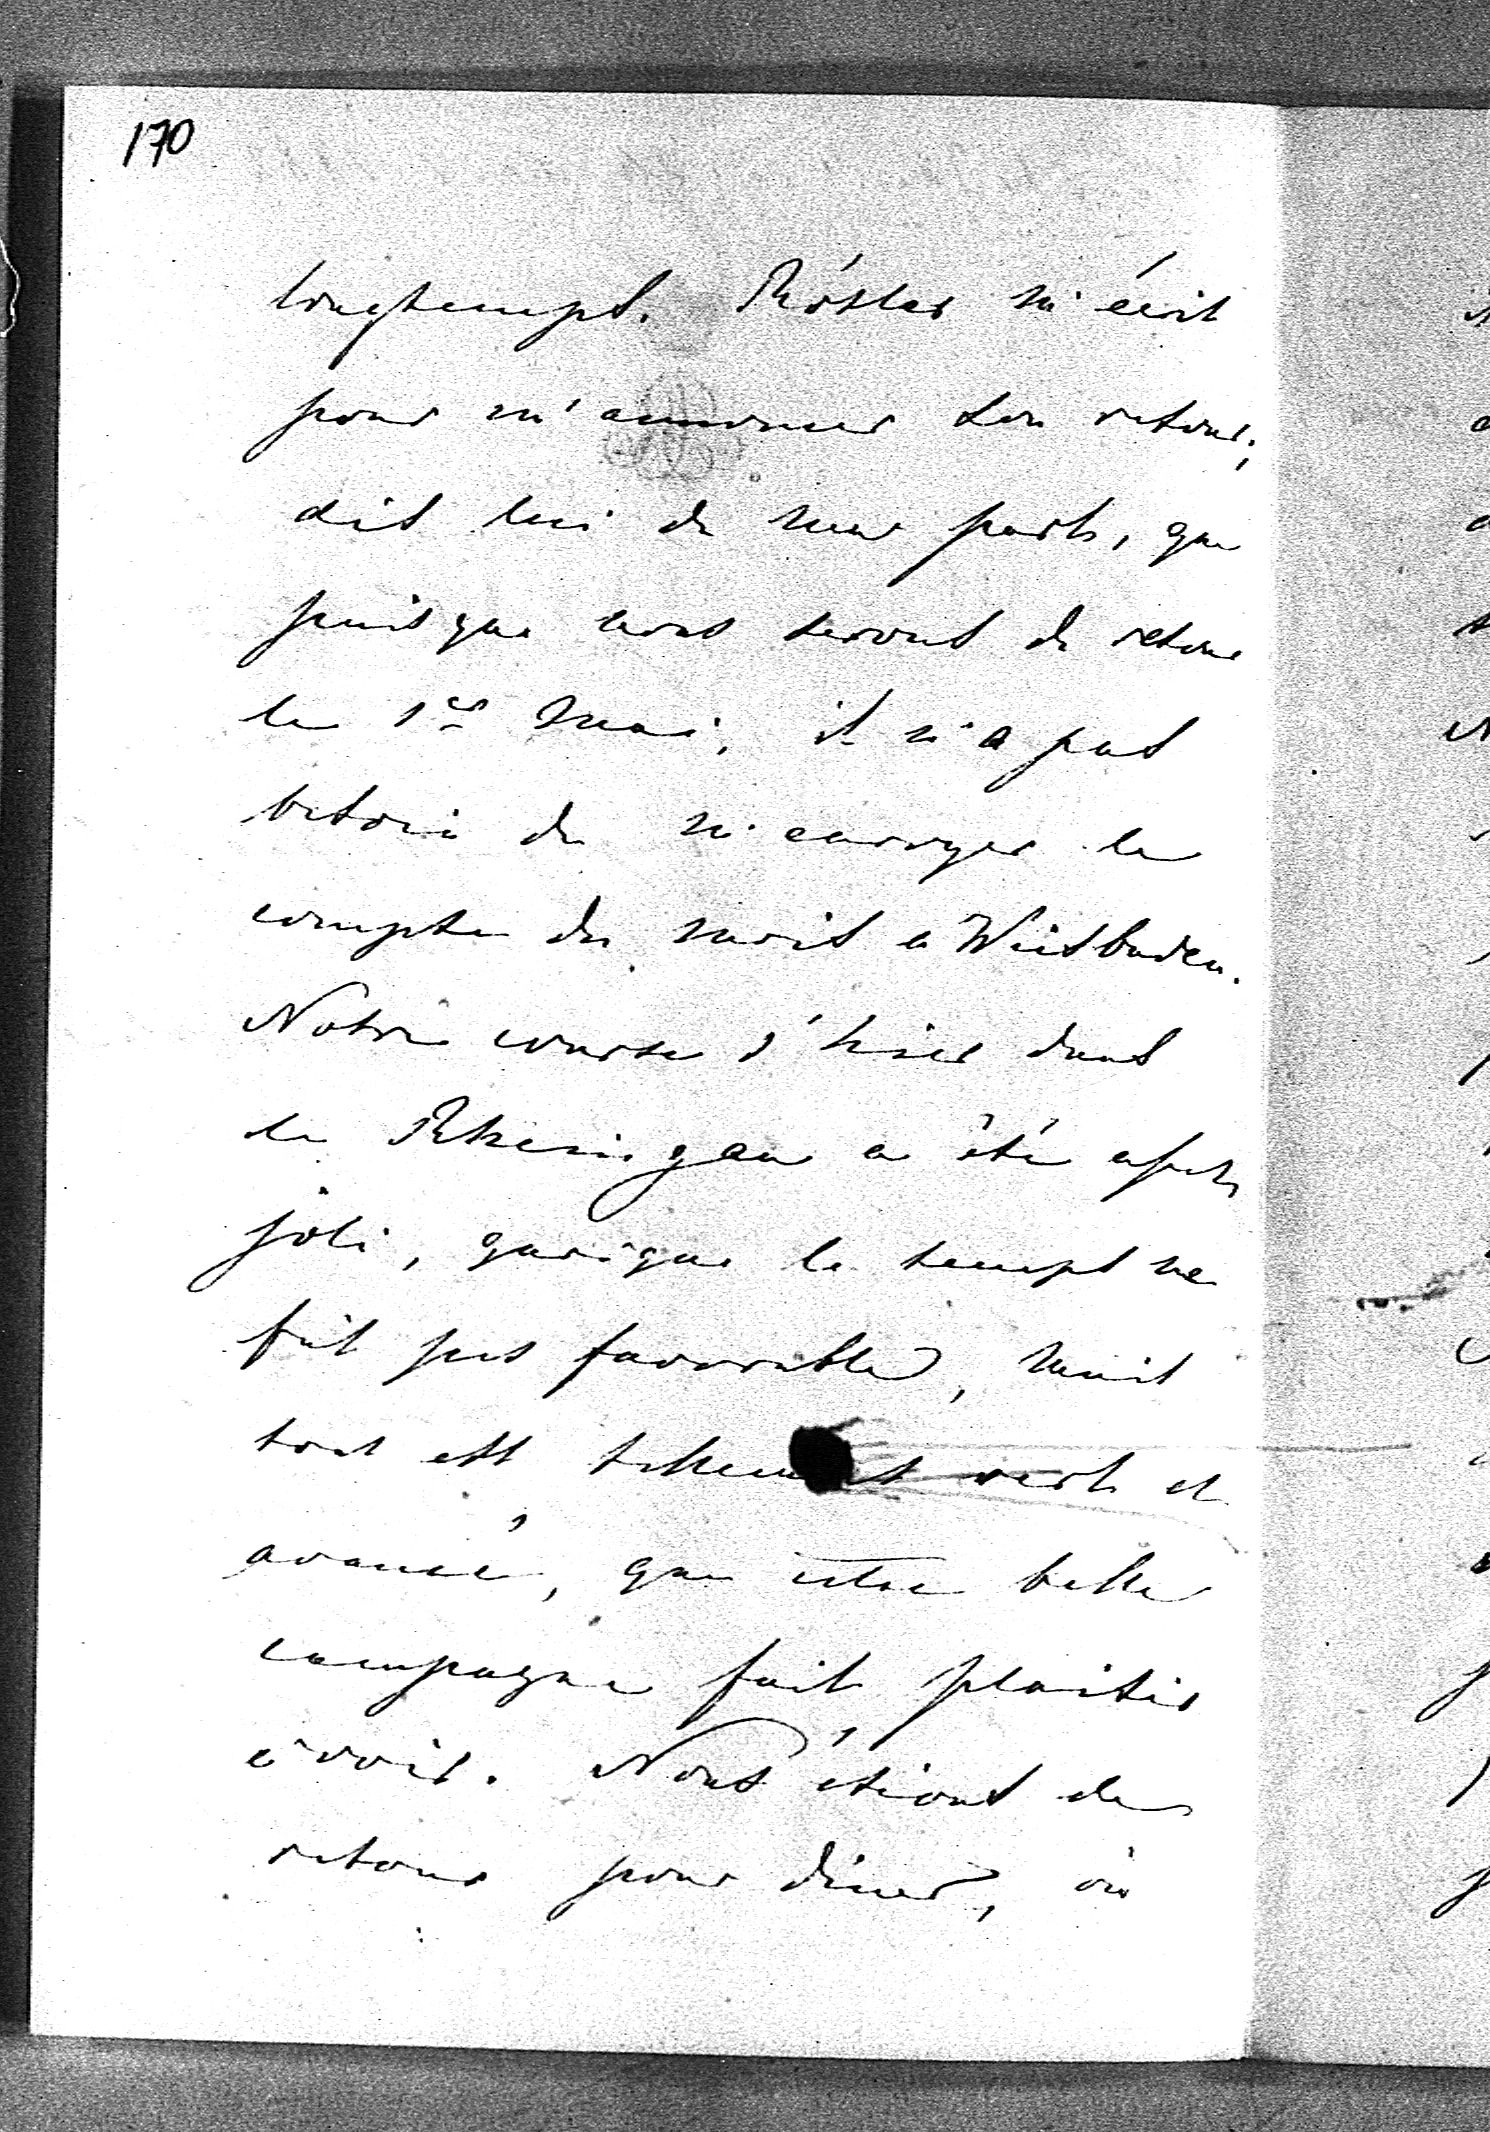 170
longtemps. Röster m'écrit
pour m'annoncer son retour;
dis lui de ma part, que
puisque nous serons de retour
le 1er Mai, il n'a pas
besoin de m'envoyer le
compte du mois a Wiesbaden.
Notre course d'hier dans
le Rheingau a été assez
joli, quoique le temps ne
fut pas favorable, mais
tout est tellement vert et
avancé, que cette belle
campagne fait plaisir
à voir. Nous étions de
retour pour dîner, où